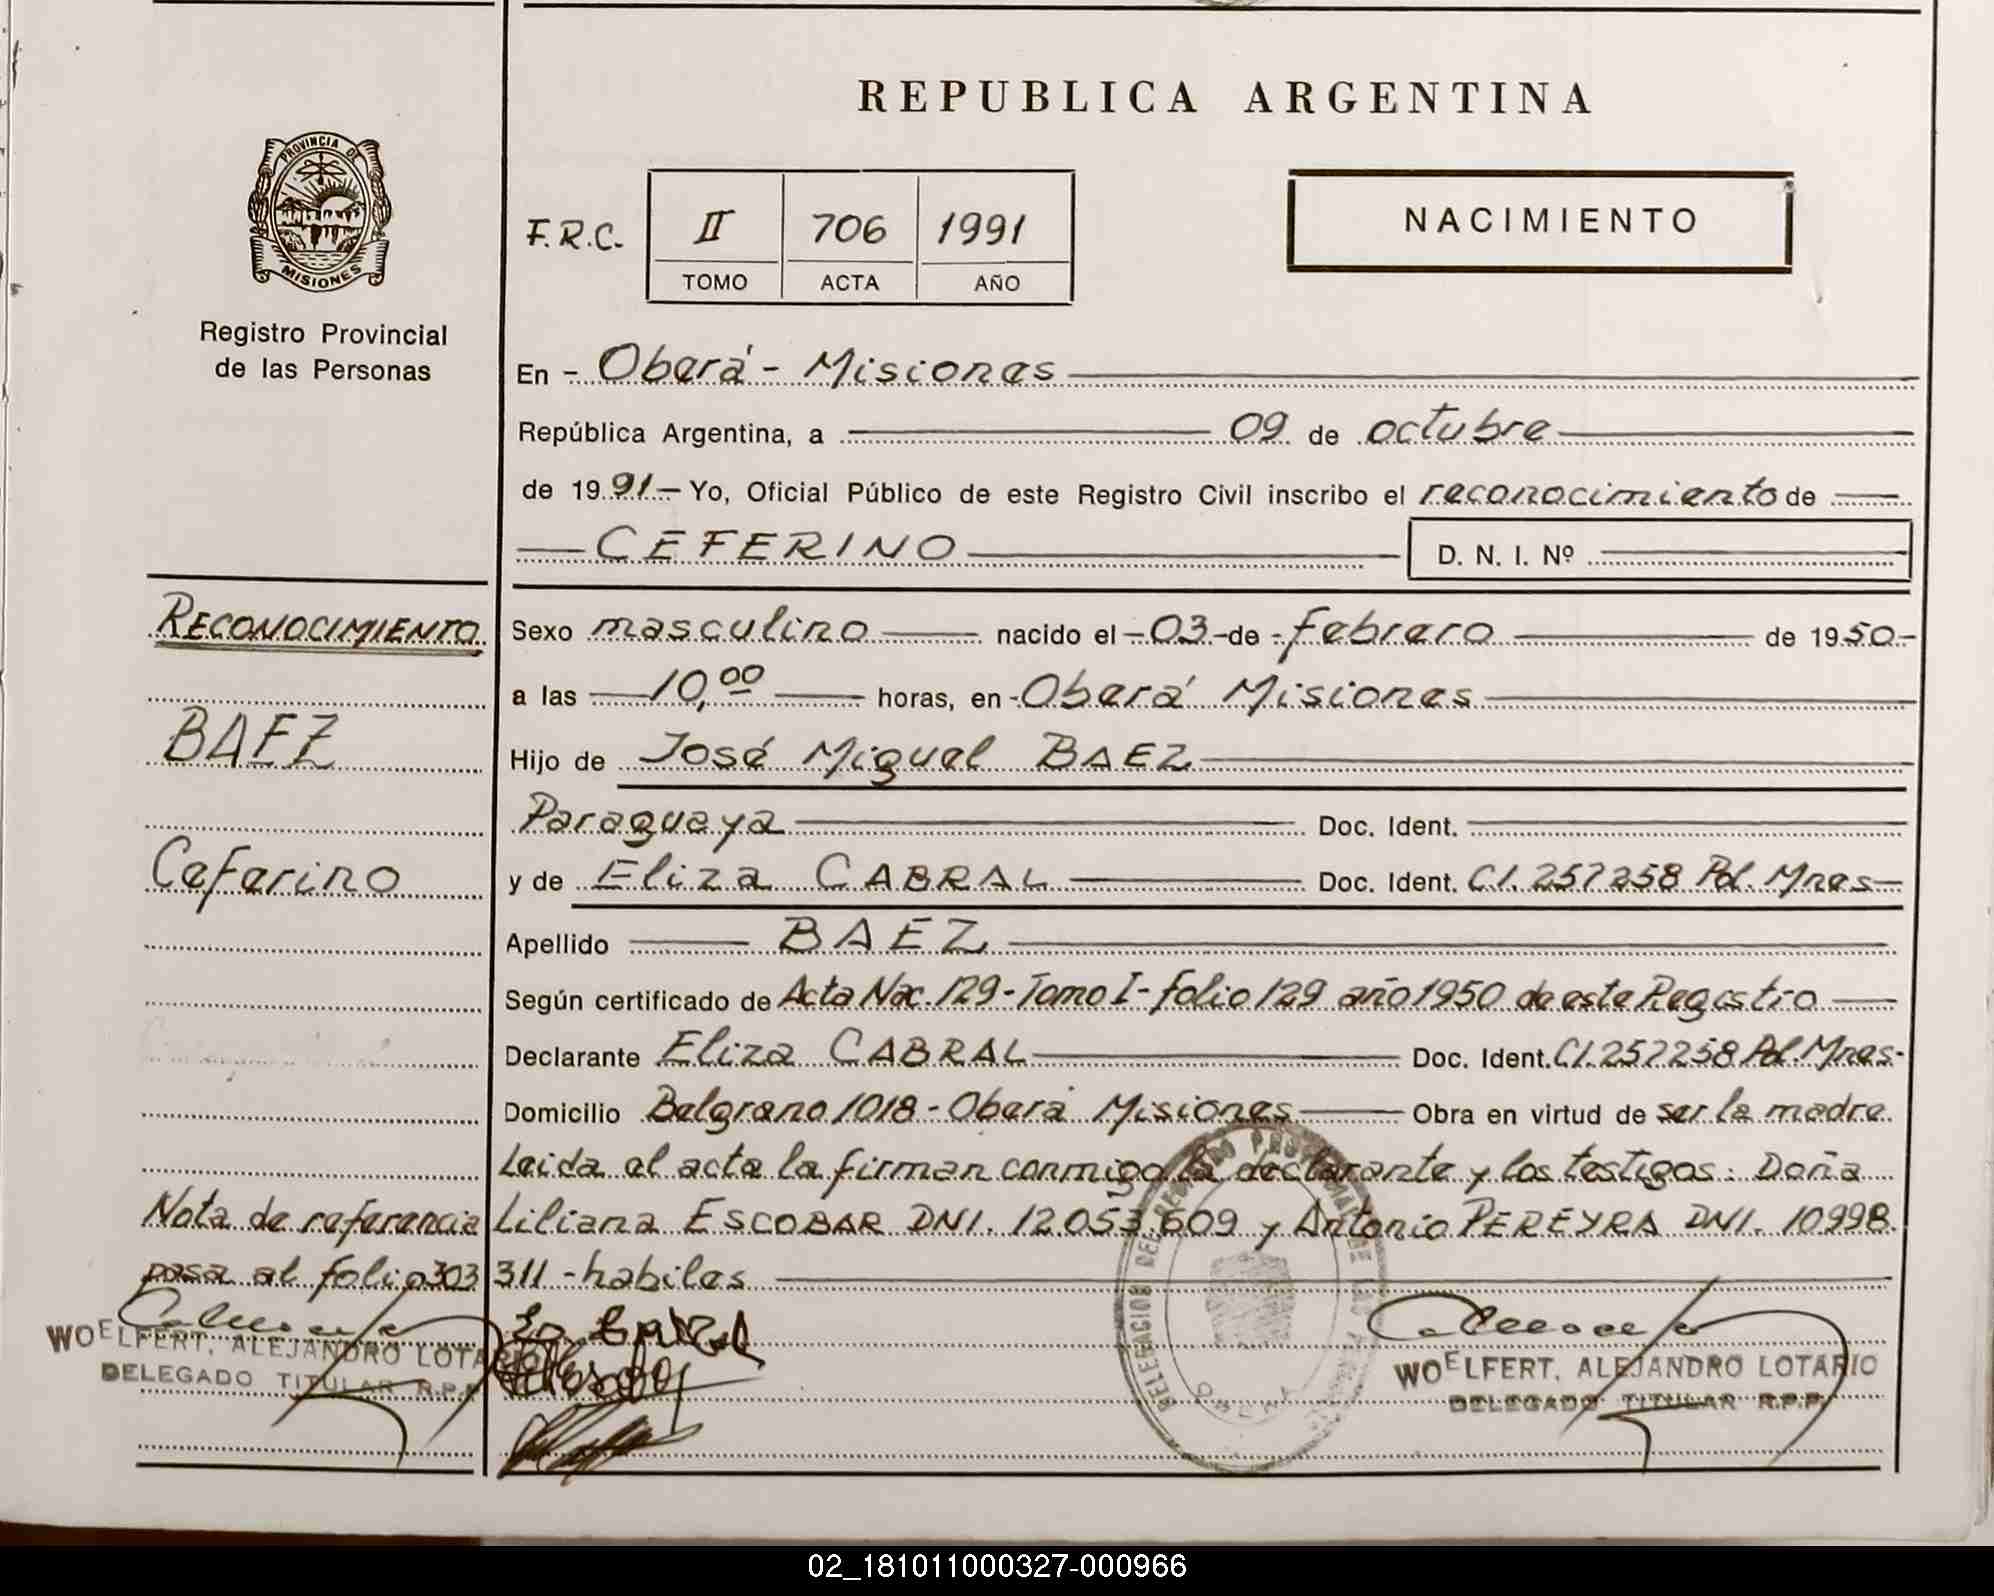 REPUBLICA ARGENTINA
PROVINCIA DE
MISIONES
Registro Provincial
de las Personas
F.R.C.
II 706 1991
TOMO ACTA AÑO
NACIMIENTO
En - Oberá - Misiones
República Argentina, a 09 de octubre
de 1991 - Yo, Oficial Público de este Registro Civil inscribo el reconocimiento de
CEFERINO
D. N. I. Nº
RECONOCIMIENTO
BAEZ
Ceferino
Sexo masculino nacido el - 03 - de - febrero de 1950 -
a las 10,00 horas, en - Oberá Misiones
Hijo de José Miguel BAEZ
Paraguaya Doc. Ident.
y de Eliza CABRAL Doc. Ident. C.I. 257258 Pol. Mnes -
Apellido BAEZ
Según certificado de Acta Nac. 129 - Tomo I - folio 129 año 1950 de este Registro
Declarante Eliza CABRAL Doc. Ident. C.I. 257258 Pol. Mnes -
Domicilio Belgrano 1018 - Oberá Misiones Obra en virtud de ser la madre.
Leida el acta la firman conmigo la declarante y los testigos: Doña
Liliana ESCOBAR DNI. 12.053.609 y Antonio PEREYRA DNI. 10.998.
311 - habiles
Nota de referencia
pasa al folio 303
WOELFERT, ALEJANDRO LOTARIO
DELEGADO TITULAR R.P.P.
WOELFERT, ALEJANDRO LOTARIO
DELEGADO TITULAR R.P.P.
02_181011000327-000966